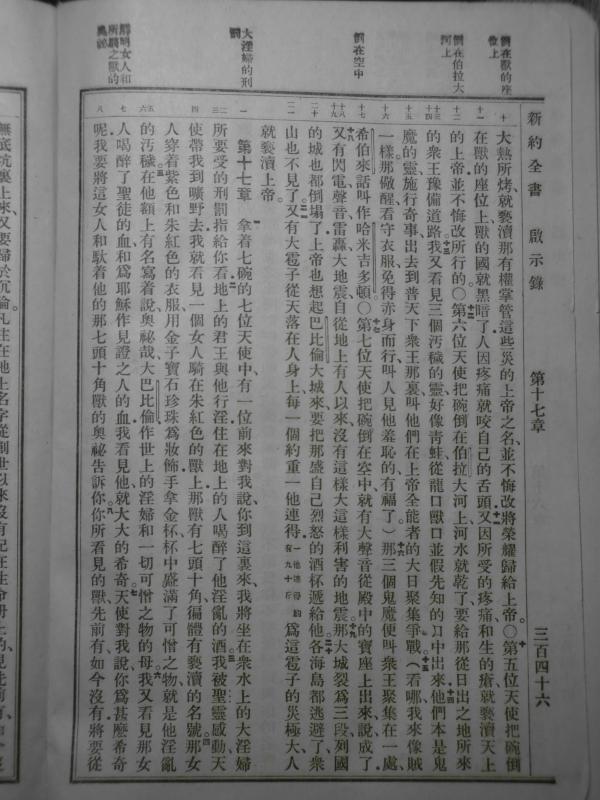 新約全書 啟示錄 第十七章 三百四十六
倒在獸的座
位上
倒在伯拉大
河上
倒在空中
大淫婦的刑
罰
解明女人和
所騎之獸的
奧祕
十 大熱所烤就褻瀆那有權掌管這些災的上帝之名並不悔改將榮耀歸給上帝。〇第五位天使把碗倒
十一 在獸的座位上獸的國就黑暗了人因疼痛就咬自己的舌頭又因所受的疼痛和生的瘡就褻瀆天上
十二 的上帝並不悔改所行的〇第六位天使把碗倒在伯拉大河上河水就乾了要給那從日出之地所來
十三十四 的衆王豫備道路我又看見三個汚穢的靈好像靑蛙從龍口獸口並假先知的口中出來他們本是鬼
十五 魔的靈施行奇事出去到普天下衆王那裏叫他們在上帝全能者的大日聚集爭戰（看哪我來像賊
十六 一樣那儆醒看守衣服免得赤身而行叫人見他羞恥的有福了）那三個鬼魔便叫衆王聚集在一處
十七 希伯來話叫作哈米吉多頓〇第七位天使把碗倒在空中就有大聲音從殿中的寶座上出來說成了
十八 又有閃電聲音雷轟大地震自從地上有人以來沒有這樣大這樣利害的地震那大城裂爲三段列國
二十 的城也都倒塌了上帝也想起巴比倫大城來要把那盛自己烈怒的酒杯遞給他各海島都逃避了衆
二一 山也不見了又有大雹子從天落在人身上每一個約重一他連得一他連得約有九十斤爲這雹子的災極大人
就褻瀆上帝。
一 第十七章 拿着七碗的七位天使中有一位前來對我說你到這裏來我將坐在衆水上的大淫婦
二三 所要受的刑罰指給你看地上的君王與他行淫住在地上的人喝醉了他淫亂的酒我被聖靈感動天
四 使帶我到曠野去我就看見一個女人騎在朱紅色的獸上那獸有七頭十角徧體有褻瀆的名號那女
人穿着紫色和朱紅色的衣服用金子寶石珍珠爲妝飾手拿金杯杯中盛滿了可憎之物就是他淫亂
五六 的汚穢在他額上有名寫着說奧祕哉大巴比倫作世上的淫婦和一切可憎之物的母我又看見那女
七 人喝醉了聖徒的血和爲耶穌作見證之人的血我看見他就大大的希奇天使對我說你爲甚麼希奇
八 呢我要將這女人和馱着他的那七頭十角獸的奧祕告訴你你所看見的獸先前有如今沒有將要從
無底坑裏上來又要歸於沉淪凡住在地上名字從創世以來沒有記在生命冊上的見先前有